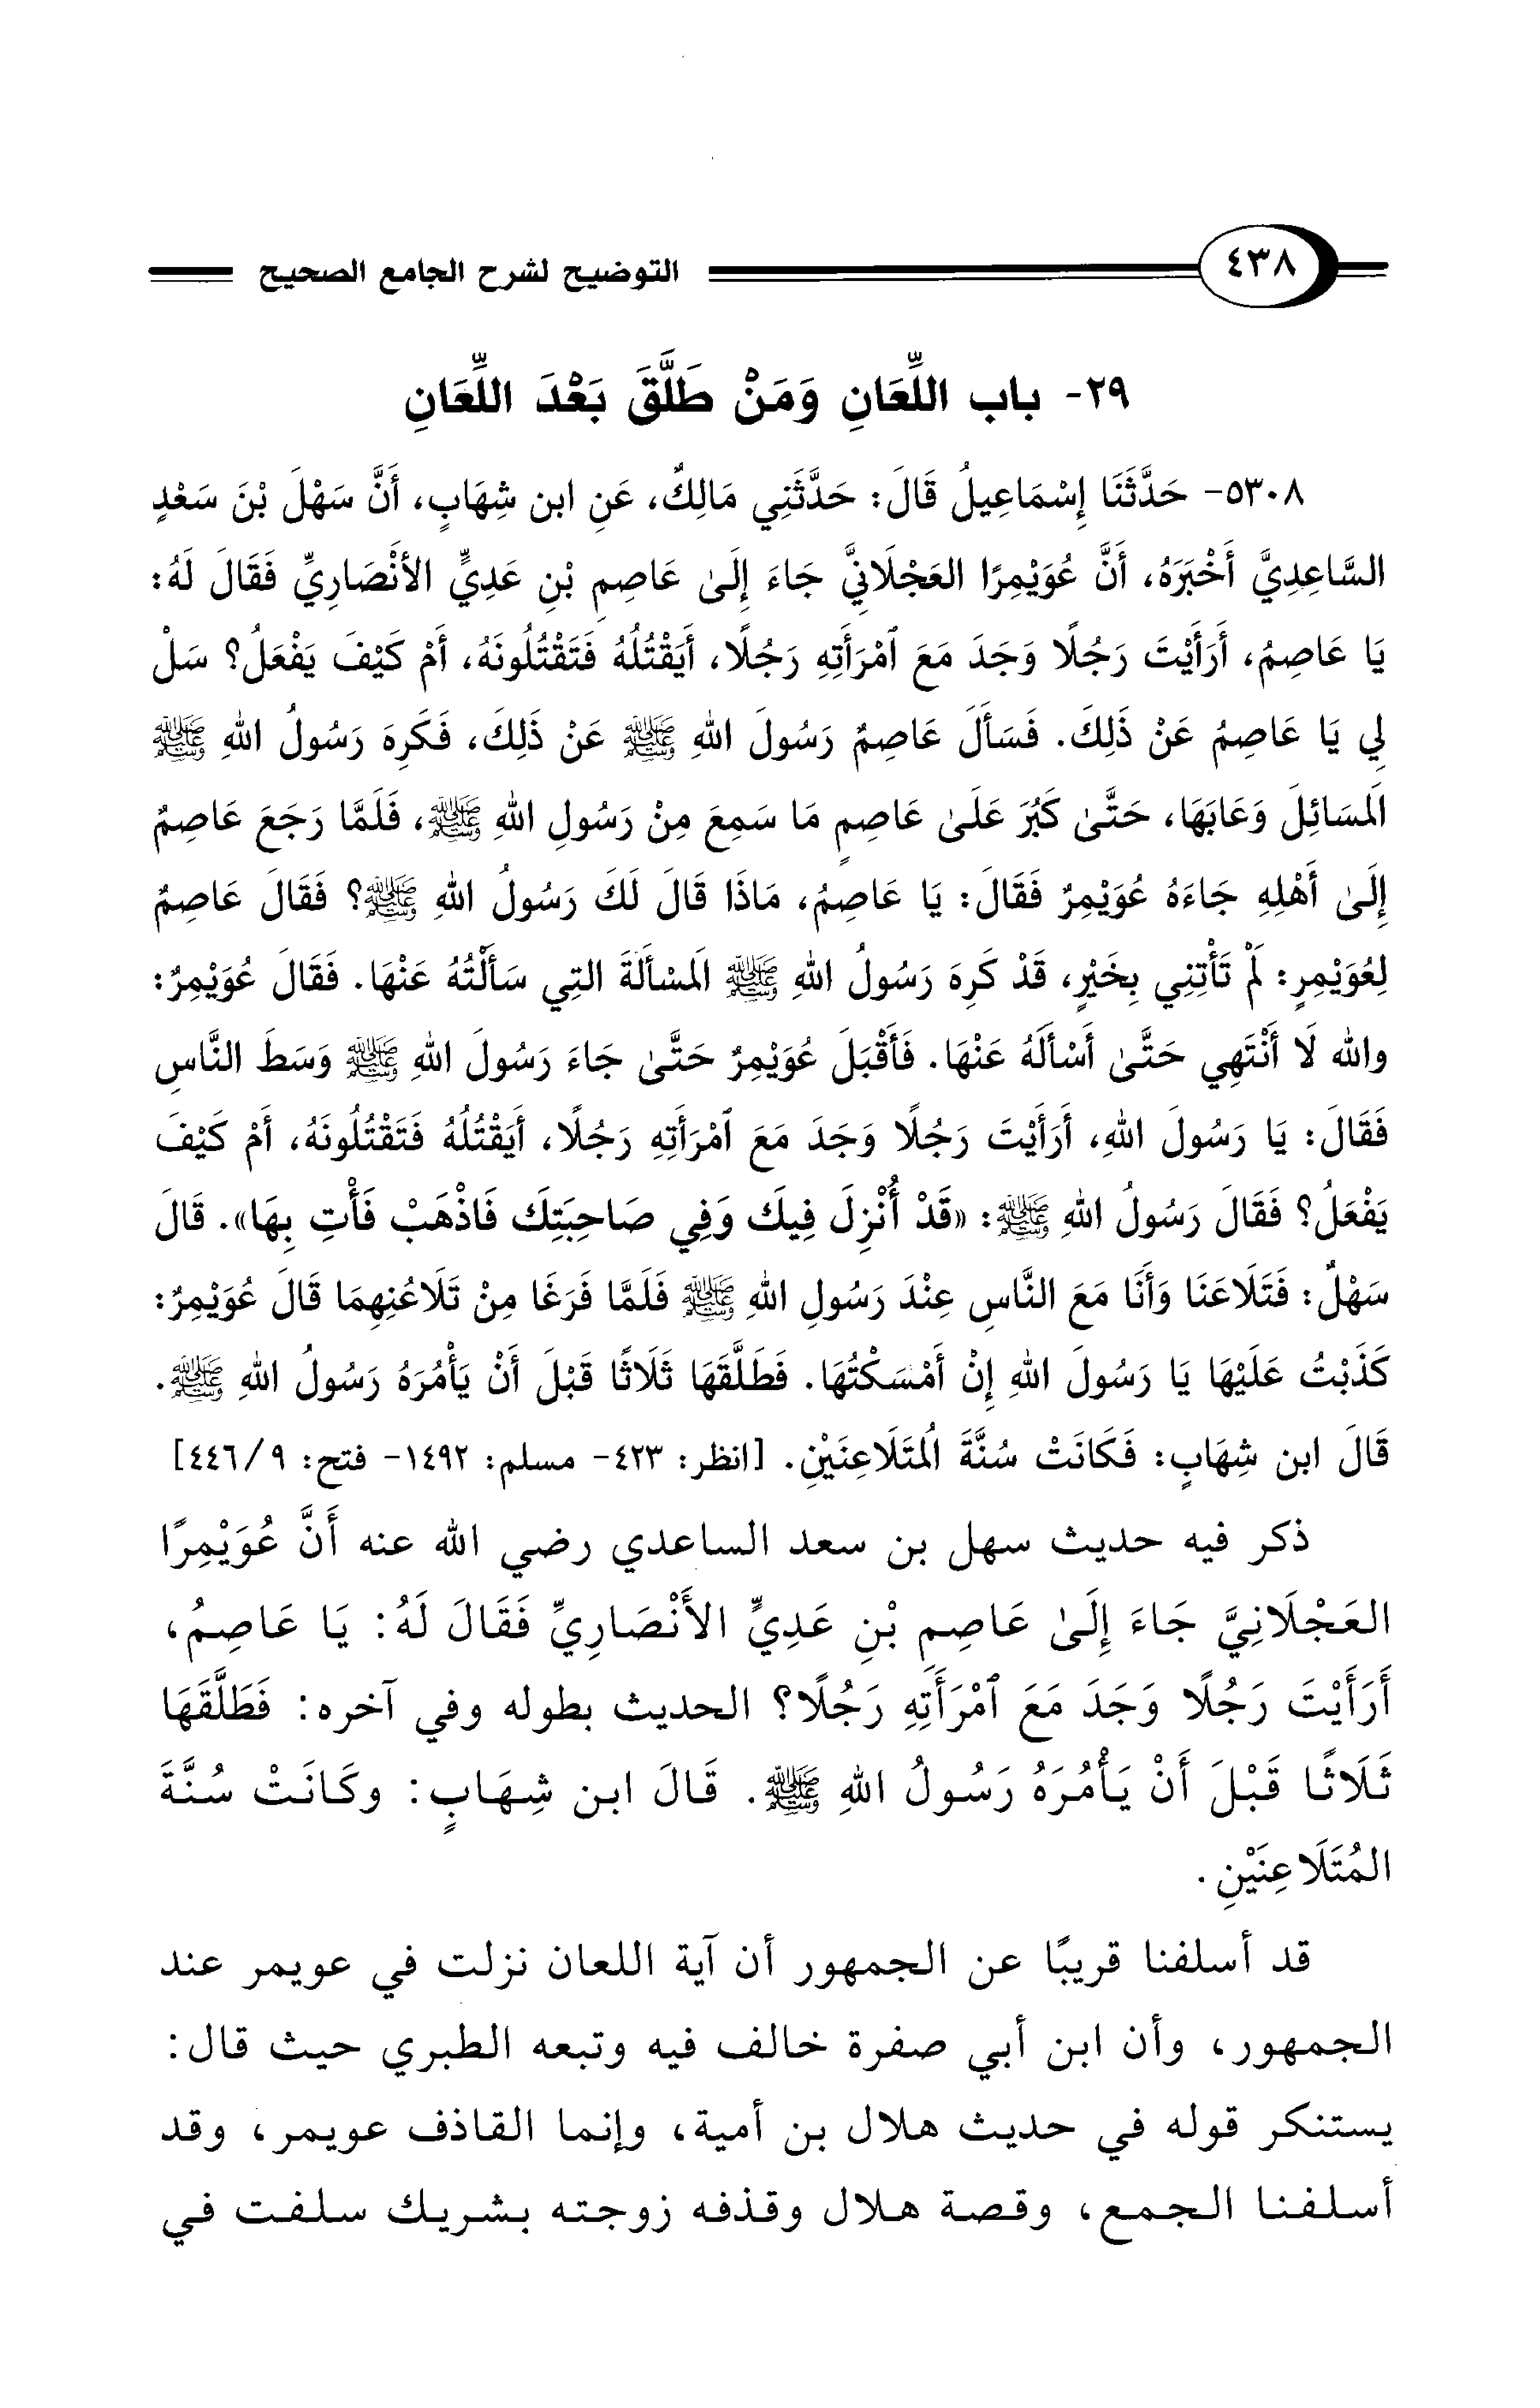 ٤٣٨
التوضيح لشرح الجامع الصحيح
٢٩- باب اللِّعَانِ وَمَنْ طَلَّقَ بَعْدَ اللِّعَانِ
٥٣٠٨- حَدَّثَنَا إِسْمَاعِيلُ قَالَ: حَدَّثَنِي مَالِكٌ، عَنِ ابن شِهَابٍ، أَنَّ سَهْلَ بْنَ سَعْدٍ
السَّاعِدِيَّ أَخْبَرَهُ، أَنَّ عُوَيْمِرًا العَجْلَانِيَّ جَاءَ إِلَىٰ عَاصِمِ بْنِ عَدِيٍّ الأَنْصَارِيِّ فَقَالَ لَهُ:
يَا عَاصِمُ، أَرَأَيْتَ رَجُلًا وَجَدَ مَعَ ٱمْرَأَتِهِ رَجُلًا، أَيَقْتُلُهُ فَتَقْتُلُونَهُ، أَمْ كَيْفَ يَفْعَلُ؟ سَلْ
لِي يَا عَاصِمُ عَنْ ذَلِكَ. فَسَأَلَ عَاصِمٌ رَسُولَ اللهِ ﷺ عَنْ ذَلِكَ، فَكَرِهَ رَسُولُ اللهِ ﷺ
المَسَائِلَ وَعَابَهَا، حَتَّىٰ كَبُرَ عَلَىٰ عَاصِمٍ مَا سَمِعَ مِنْ رَسُولِ اللهِ ﷺ، فَلَمَّا رَجَعَ عَاصِمٌ
إِلَىٰ أَهْلِهِ جَاءَهُ عُوَيْمِرٌ فَقَالَ: يَا عَاصِمُ، مَاذَا قَالَ لَكَ رَسُولُ اللهِ ﷺ؟ فَقَالَ عَاصِمٌ
لِعُوَيْمِرٍ: لَمْ تَأْتِنِي بِخَيْرٍ، قَدْ كَرِهَ رَسُولُ اللهِ ﷺ المَسْأَلَةَ التِي سَأَلْتُهُ عَنْهَا. فَقَالَ عُوَيْمِرٌ:
والله لَا أَنْتَهِي حَتَّىٰ أَسْأَلَهُ عَنْهَا. فَأَقْبَلَ عُوَيْمِرٌ حَتَّىٰ جَاءَ رَسُولَ اللهِ ﷺ وَسَطَ النَّاسِ
فَقَالَ: يَا رَسُولَ اللهِ، أَرَأَيْتَ رَجُلًا وَجَدَ مَعَ ٱمْرَأَتِهِ رَجُلًا، أَيَقْتُلُهُ فَتَقْتُلُونَهُ، أَمْ كَيْفَ
يَفْعَلُ؟ فَقَالَ رَسُولُ اللهِ ﷺ: «قَدْ أُنْزِلَ فِيكَ وَفِي صَاحِبَتِكَ فَاذْهَبْ فَأْتِ بِهَا». قَالَ
سَهْلٌ: فَتَلَاعَنَا وَأَنَا مَعَ النَّاسِ عِنْدَ رَسُولِ اللهِ ﷺ فَلَمَّا فَرَغَا مِنْ تَلَاعُنِهِمَا قَالَ عُوَيْمِرٌ:
كَذَبْتُ عَلَيْهَا يَا رَسُولَ اللهِ إِنْ أَمْسَكْتُهَا. فَطَلَّقَهَا ثَلَاثًا قَبْلَ أَنْ يَأْمُرَهُ رَسُولُ اللهِ ﷺ.
قَالَ ابن شِهَابٍ: فَكَانَتْ سُنَّةَ المُتَلَاعِنَيْنِ. [انظر: ٤٢٣- مسلم: ١٤٩٢- فتح: ٤٤٦/٩]
ذكر فيه حديث سهل بن سعد الساعدي رضي الله عنه أَنَّ عُوَيْمِرًا
العَجْلَانِيَّ جَاءَ إِلَىٰ عَاصِمِ بْنِ عَدِيٍّ الأَنْصَارِيِّ فَقَالَ لَهُ: يَا عَاصِمُ،
أَرَأَيْتَ رَجُلًا وَجَدَ مَعَ ٱمْرَأَتِهِ رَجُلًا؟ الحديث بطوله وفي آخره: فَطَلَّقَهَا
ثَلَاثًا قَبْلَ أَنْ يَأْمُرَهُ رَسُولُ اللهِ ﷺ. قَالَ ابن شِهَابٍ: وكَانَتْ سُنَّةَ
المُتَلَاعِنَيْنِ.
قد أسلفنا قريبًا عن الجمهور أن آية اللعان نزلت في عويمر عند
الجمهور، وأن ابن أبي صفرة خالف فيه وتبعه الطبري حيث قال:
يستنكر قوله في حديث هلال بن أمية، وإنما القاذف عويمر، وقد
أسلفنا الجمع، وقصة هلال وقذفه زوجته بشريك سلفت في